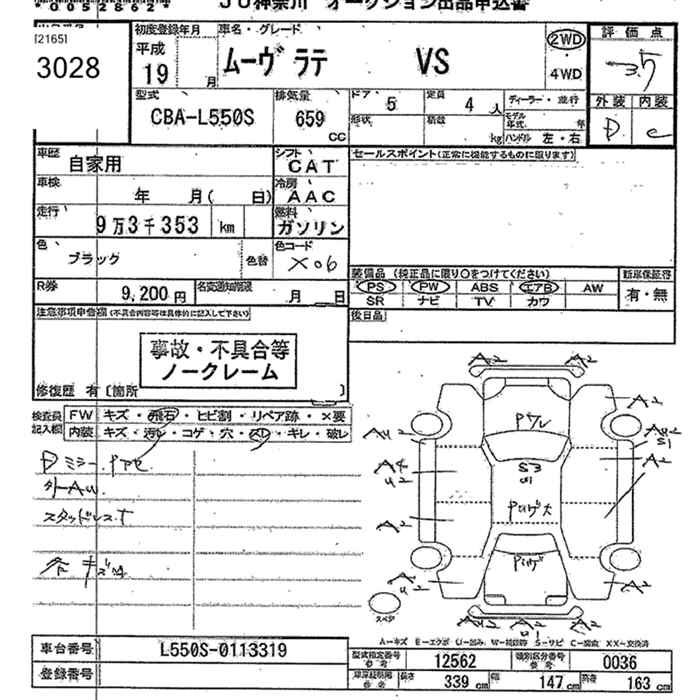 00052862
JU神奈川 オークション出品申込書
[2165]
3028
初度登録年月
平成
19 月
車名・グレード
ムーヴ ラテ VS
2WD
・
4WD
評価点
3.5
外装 内装
D C
型式
CBA-L550S
排気量
659
CC
ドア 5
定員 4 人
形状
積載 kg
ディーラー・並行
モデル年式 年
ハンドル 左・右
車歴
自家用
シフト
CAT
セールスポイント(正常に機能するものに限ります)
車検
年 月( 日)
冷房
AAC
走行
9万3千353 km
燃料
ガソリン
色
ブラック
色替
色コード
X06
R券
9,200円
名変通知期限
月 日
装備品 (純正品に限り○をつけてください)
PS PW ABS エアB AW
SR ナビ TV カワ
新車保証書
有・無
後日品
注意事項申告欄(不具合内容等は具体的に記入して下さい)
事故・不具合等
ノークレーム
修復歴 有〔箇所 〕
検査員
記入欄
FW キズ・飛石・ヒビ割・リペア跡・×要
内装 キズ・汚レ・コゲ・穴・スレ・キレ・破レ
Dミラー
外AU
スタッドレスT
A2 A2
A2
AU2
AU2
S1
A2
A4
U2
S3
U1
A2
A2
U
A2
A2 A2
U1
スペア
A-キズ E-エクボ U-凹み W-補修跡 S-サビ C-腐食 XX-交換済
車台番号
L550S-0113319
登録番号
型式指定番号
参考
12562
類別区分番号
参考
0036
車庫証明用
参考
長さ 339 cm
幅 147 cm
高さ 163 cm